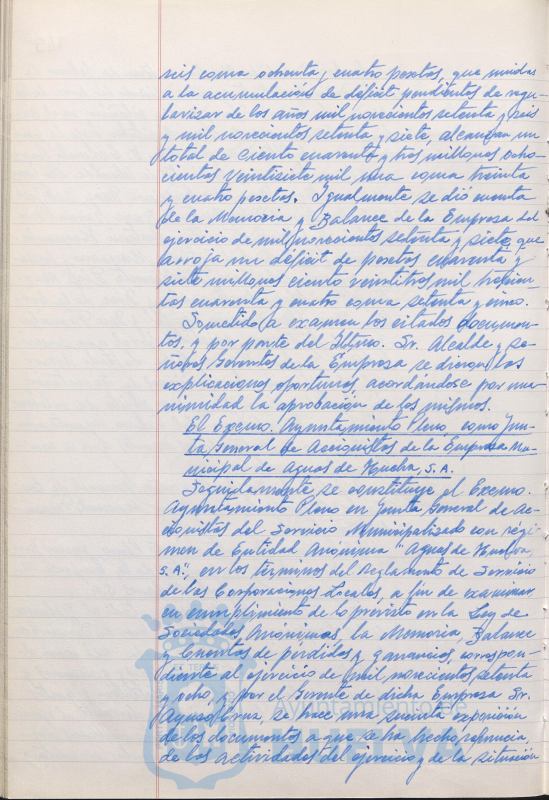 seis coma ochenta y cuatro pesetas, que unidas
a la acumulación de déficit pendientes de regu-
larizar de los años mil novecientos setenta y seis
y mil novecientos setenta y siete, alcanzan un
total de ciento cuarenta y tres millones ocho-
cientos veintisiete mil una coma treinta
y cuatro pesetas. Igualmente se dió cuenta
de la Memoria y Balance de la Empresa del
ejercicio de mil novecientos setenta y siete, que
arroja un déficit de pesetas cuarenta y
siete millones ciento veintitres mil trescien-
tas cuarenta y cuatro coma setenta y uno.
Sometido a examen los citados documen-
tos, y por parte del Iltmo. Sr. Alcalde y se-
ñores Gerentes de la Empresa se dieron las
explicaciones oportunas, acordándose por una-
nimidad la aprobación de los mismos.
El Excmo. Ayuntamiento Pleno, como Jun-
ta General de Accionistas de la Empresa Mu-
nicipal de Aguas de Huelva, S.A.
Seguidamente se constituye el Excmo.
Ayuntamiento Pleno en Junta General de Ac-
cionistas del Servicio Municipalizado con régi-
men de Entidad Anónima "Aguas de Huelva,
S.A.", en los términos del Reglamento de Servicio
de las Corporaciones Locales, a fin de examinar
en cumplimiento de lo previsto en la Ley de
Sociedades Anónimas, la Memoria, Balance
y Cuentas de pérdidas y ganancias, correspon-
diente al ejercicio de mil novecientos setenta
y ocho y por el Gerente de dicha Empresa Sr.
Cruz, se hace una sucinta exposición
de los documentos a que se ha hecho referencia,
de las actividades del ejercicio y de la situación
Ayuntamiento de
HUELVA